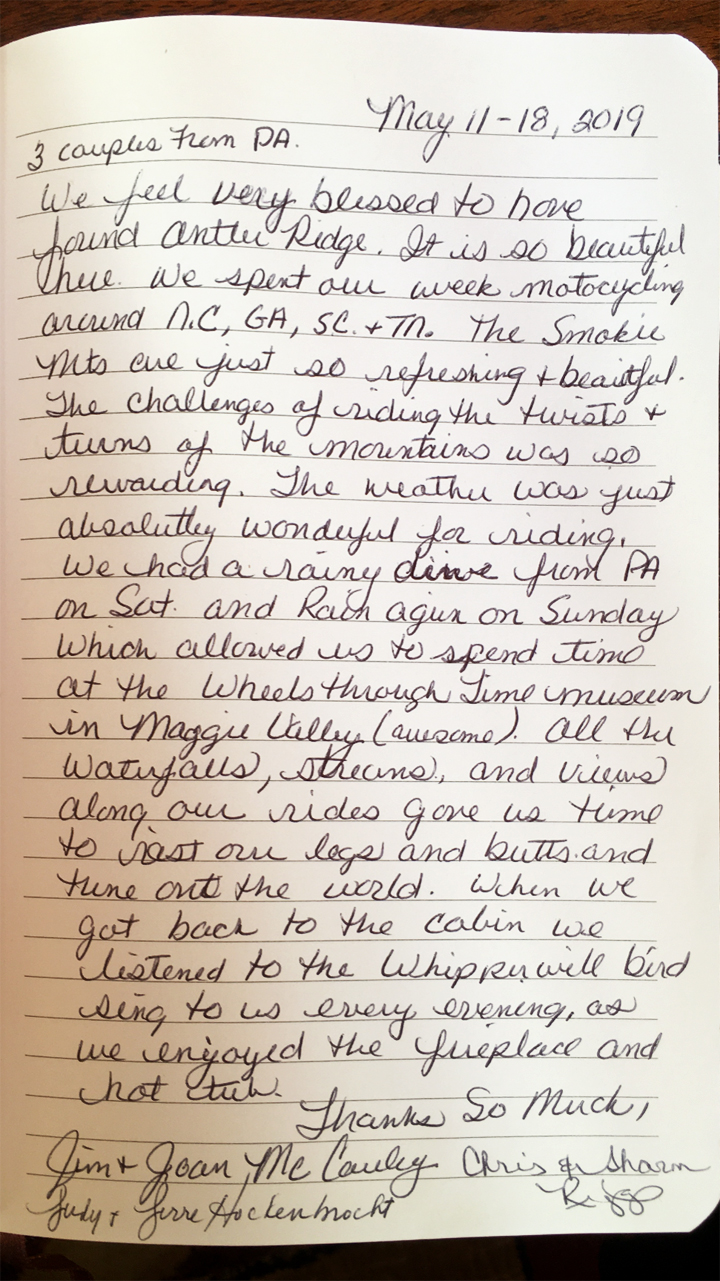 May 11-18, 2019
3 couples from PA.
We feel very blessed to have
found Antler Ridge. It is so beautiful
here. We spent our week motocycling
around N.C, GA, SC. + TN. The Smokie
Mts are just so refreshing + beaitful.
The challenges of riding the twists +
turns of the mountains was so
rewarding. The weather was just
absolutley wonderful for riding.
We had a rainy drive from PA
on Sat. and Rain agin on Sunday
which allowed us to spend time
at the Wheels through Time museum
in Maggie Valley (awesome). All the
Waterfalls, streams, and views
along our rides gave us time
to rest our legs and butts and
tune out the world. When we
got back to the cabin we
listened to the Whipperwill bird
sing to us every evening, as
we enjoyed the fireplace and
hot tub.
Thanks So Much,
Jim + Joan McCauley Chris & Sharon
Judy + Jerre Hockenbrocht